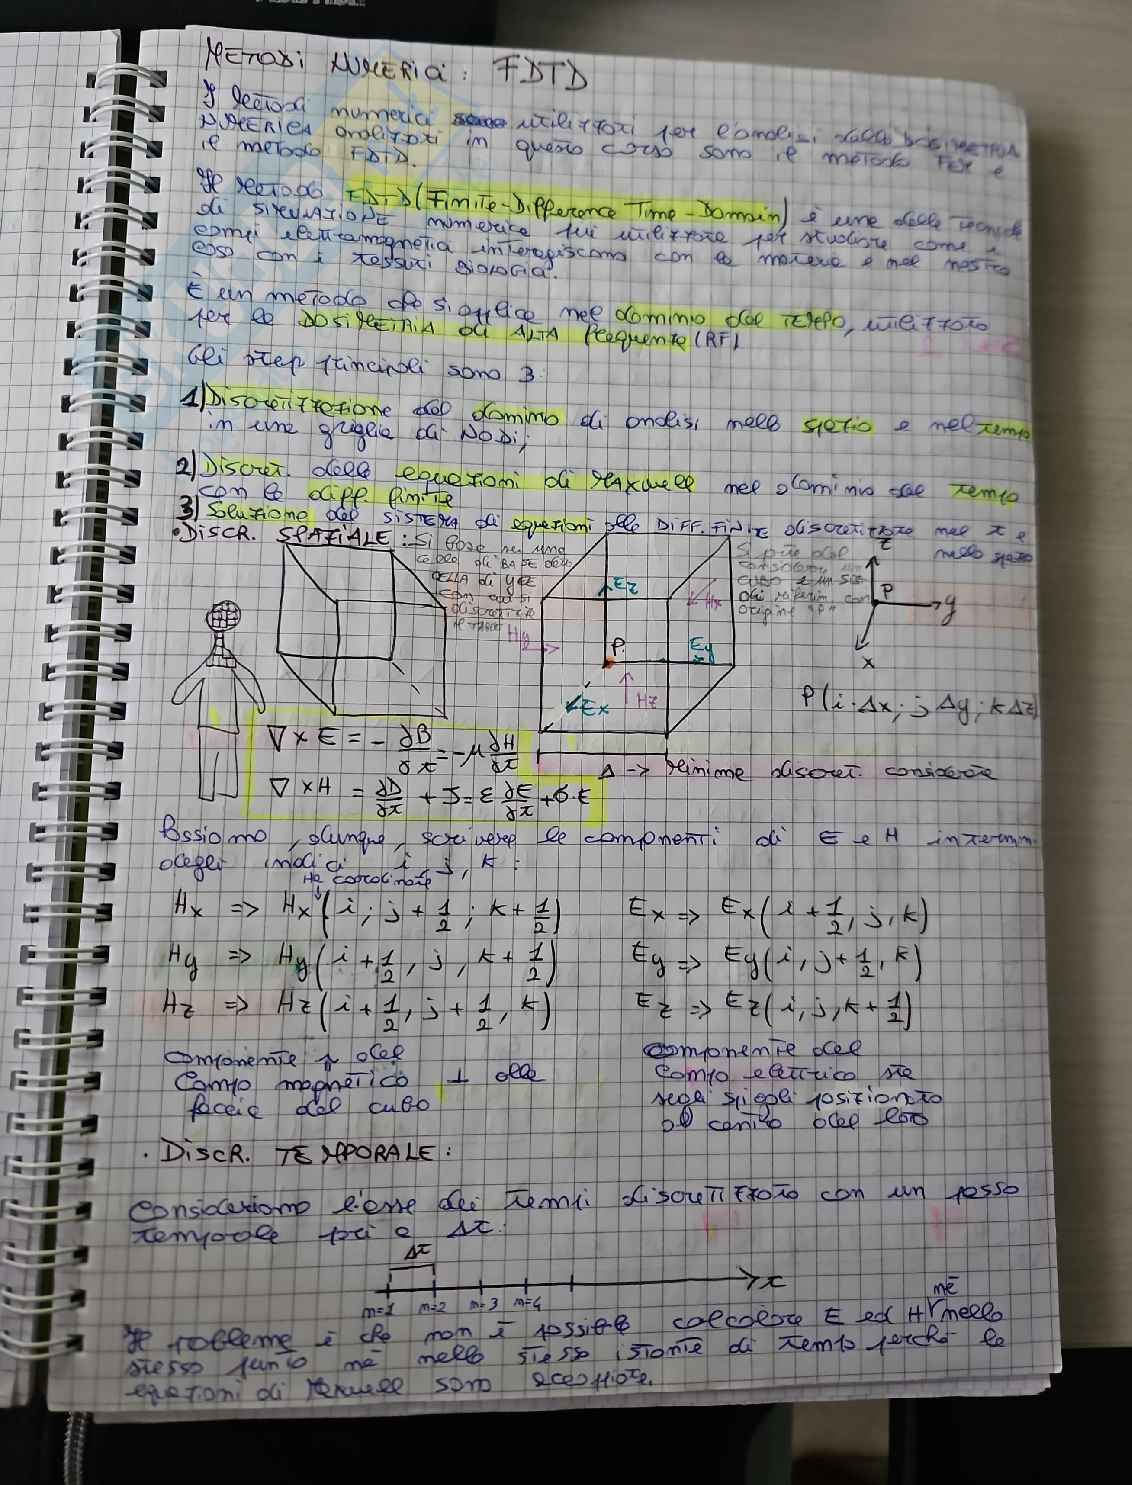 METODI NUMERICI: FDTD
I metodi numerici utilizzati per l'analisi della DOSIMETRIA
NUMERICA analizzati in questo corso sono il metodo FEM e
il metodo FDTD.
Il metodo FDTD (Finite-Difference Time-Domain) è una delle tecniche
di SIMULAZIONE numerica più utilizzate per studiare come i
campi elettromagnetici interagiscono con la materia e nel nostro
caso con i tessuti biologici.
È un metodo che si applica nel dominio del TEMPO, utilizzato
per la DOSIMETRIA di ALTA frequenza (RF)
Gli step principali sono 3:
1) Discretizzazione del dominio di analisi nello spazio e nel tempo
in una griglia di NODI;
2) Discret. delle equazioni di MAXwell nel dominio del tempo
con le diff. finite
3) Soluzione del SISTEMA di equazioni alle DIFF. FINITE discretizzate nel t e
nello spazio
• DISCR. SPAZIALE: Si basa su una
cella di BASE detta
CELLA di YEE
con cui si
discretizza
Si parte dal
cubo e un sis.
di riferim con
origine in P
Ez
Hx
Hy
P
Ey
Ex
Hz
z
P
y
x
P(i·Δx; jΔy; kΔz)
∇×E = -∂B/∂t = -μ ∂H/∂t
∇×H = ∂D/∂t + J = ε ∂E/∂t + σ·E
Δ -> minima discret. considerata
Possiamo, dunque, scrivere le componenti di E e H in termini
degli indici i, j, k:
Ha coordinate
Hx => Hx(i; j+1/2; k+1/2)
Ex => Ex(i+1/2, j, k)
Hy => Hy(i+1/2, j, k+1/2)
Ey => Ey(i, j+1/2, k)
Hz => Hz(i+1/2, j+1/2, k)
Ez => Ez(i, j, k+1/2)
componente del
Campo magnetico ⊥ alla
faccia del cubo
componente del
campo elettrico sta
sugli spigoli posizionato
al centro del lato
• DISCR. TEMPORALE:
Consideriamo l'asse dei tempi discretizzato con un passo
temporale pari a Δt:
Δt
t
n=1 n=2 n=3 n=4
né
Il problema è che non è possibile calcolare E ed H nello
stesso punto né nello stesso istante di tempo perché le
equazioni di Maxwell sono accoppiate.